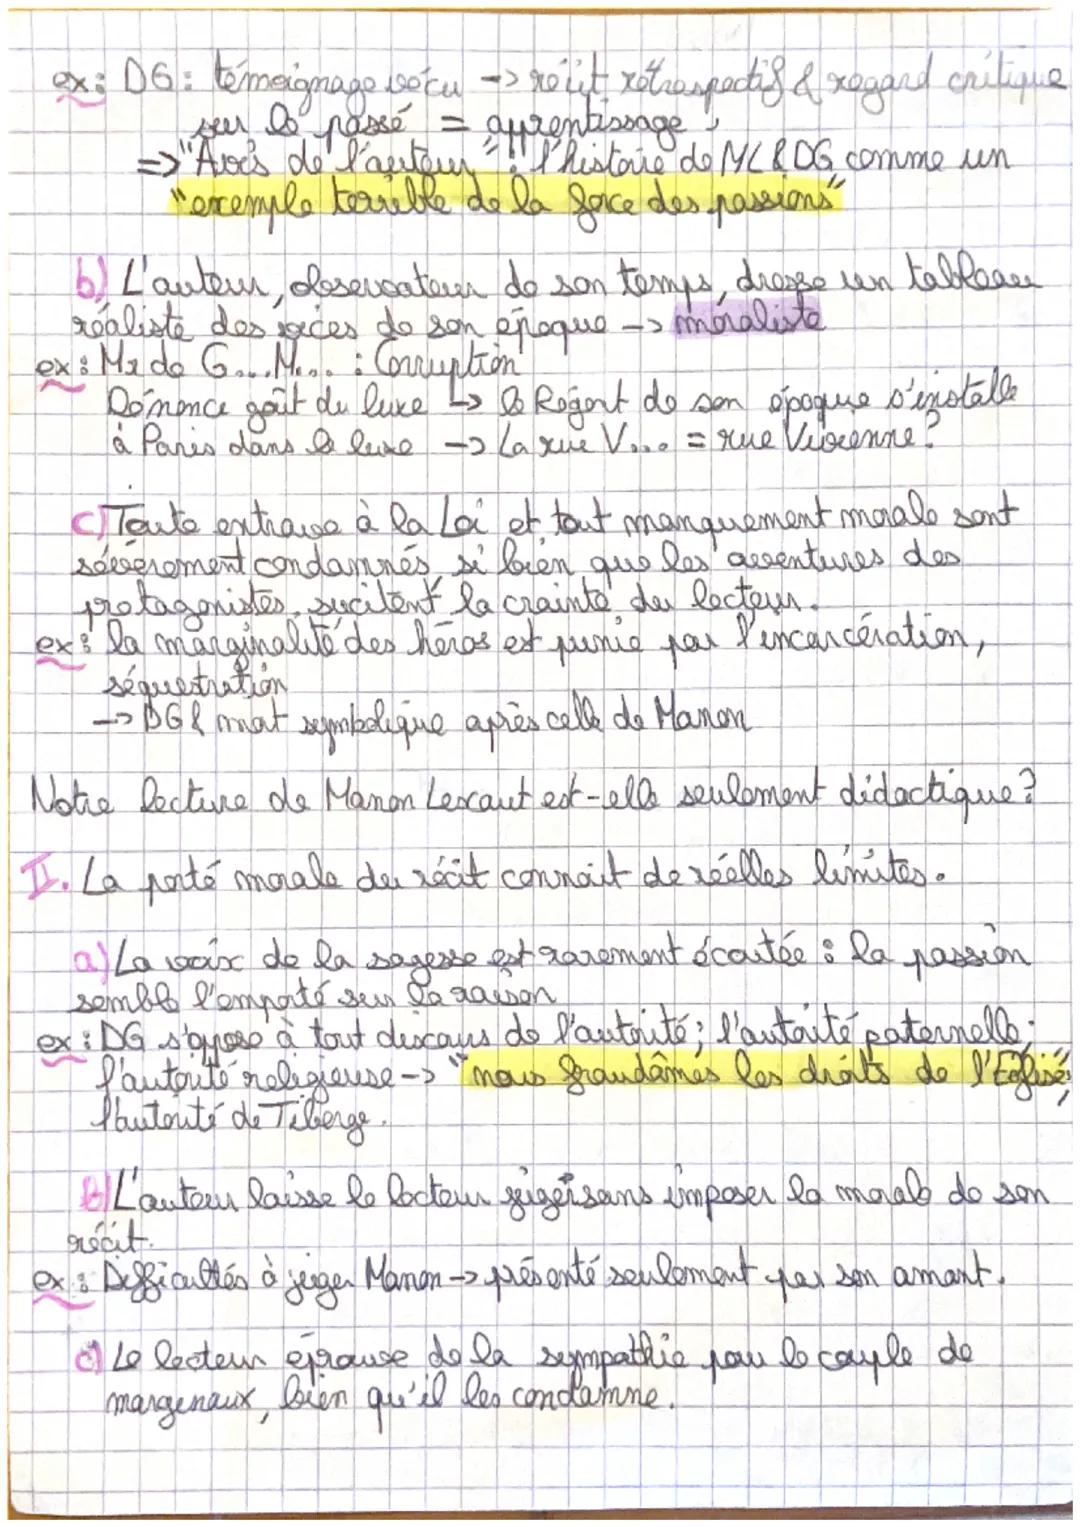 ex: DG: témoignage vécu -> récit rétrospectif & regard critique
sur le passé = apprentissage
=> "Avis de l'auteur": l'histoire de ML & DG comme un
"exemple terrible de la force des passions"
b) L'auteur, observateur de son temps, dresse un tableau
réaliste des vices de son époque -> moraliste
ex: Mr de G...M... : Corruption
Dénonce goût du luxe -> le Régent de son époque s'installe
à Paris dans le luxe -> La rue V... = rue Vivienne?
c) Toute entrave à la Loi et tout manquement morale sont
sévèrement condamnés, si bien que les aventures des
protagonistes, sucitent la crainte du lecteur.
ex: la marginalité des héros est punie par l'incarcération,
séquestration
-> DG & mort symbolique après celle de Manon
Notre lecture de Manon Lescaut est-elle seulement didactique?
II. La porté morale du récit connait de réelles limites.
a) La voix de la sagesse est rarement écoutée : la passion
semble l'emporté sur la raison
ex: DG s'oppose à tout discours de l'autorité; l'autorité paternelle;
l'autorité religieuse -> "nous fraudâmes les droits de l'Eglise",
l'autorité de Tiberge.
b) L'auteur laisse le lecteur juger sans imposer la morale de son
récit.
ex: Difficultés à juger Manon -> présenté seulement par son amant.
c) Le lecteur éprouve de la sympathie pour le couple de
marginaux, bien qu'il les condamne.